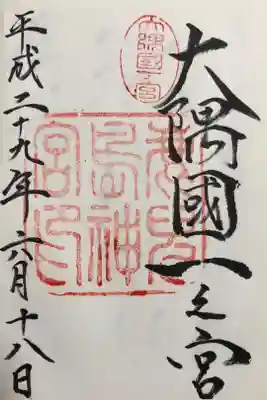 大隅國一之宮
大隅國一宮
鹿児島神宮印
平成二十九年六月十八日